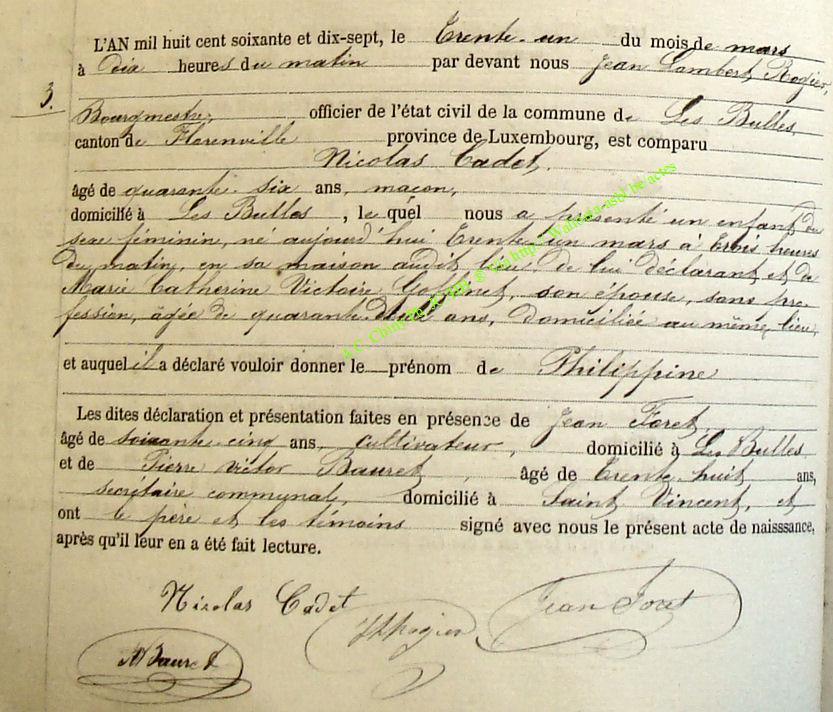 L'AN mil huit cent soixante et dix-sept, le Trente-un du mois de mars
à Dix heures du matin par devant nous Jean Lambert Rogier,
3.
Bourgmestre, officier de l'état civil de la commune de Les Bulles,
canton de Florenville province de Luxembourg, est comparu
Nicolas Cadet,
âgé de quarante-six ans, maçon,
domicilié à Les Bulles, le quel nous a présenté un enfant du
sexe féminin, né aujourd'hui Trente-un mars à trois heures
du matin, en sa maison audit lieu, de lui déclarant et de
Marie Catherine Victoire Goffinet, son épouse, sans pro
fession, âgée de quarante ans, domiciliée au même lieu,
et auquel il a déclaré vouloir donner le prénom de Philippine
Les dites déclaration et présentation faites en présence de Jean Foret,
âgé de soixante-cinq ans, cultivateur, domicilié à Les Bulles
et de Pierre Victor Bauret, âgé de trente-huit ans,
secrétaire communal, domicilié à Saint Vincent, et
ont le père et les témoins signé avec nous le présent acte de naisssance,
après qu'il leur en a été fait lecture.
Nicolas Cadet
JLRogier
Jean Foret
Bauret